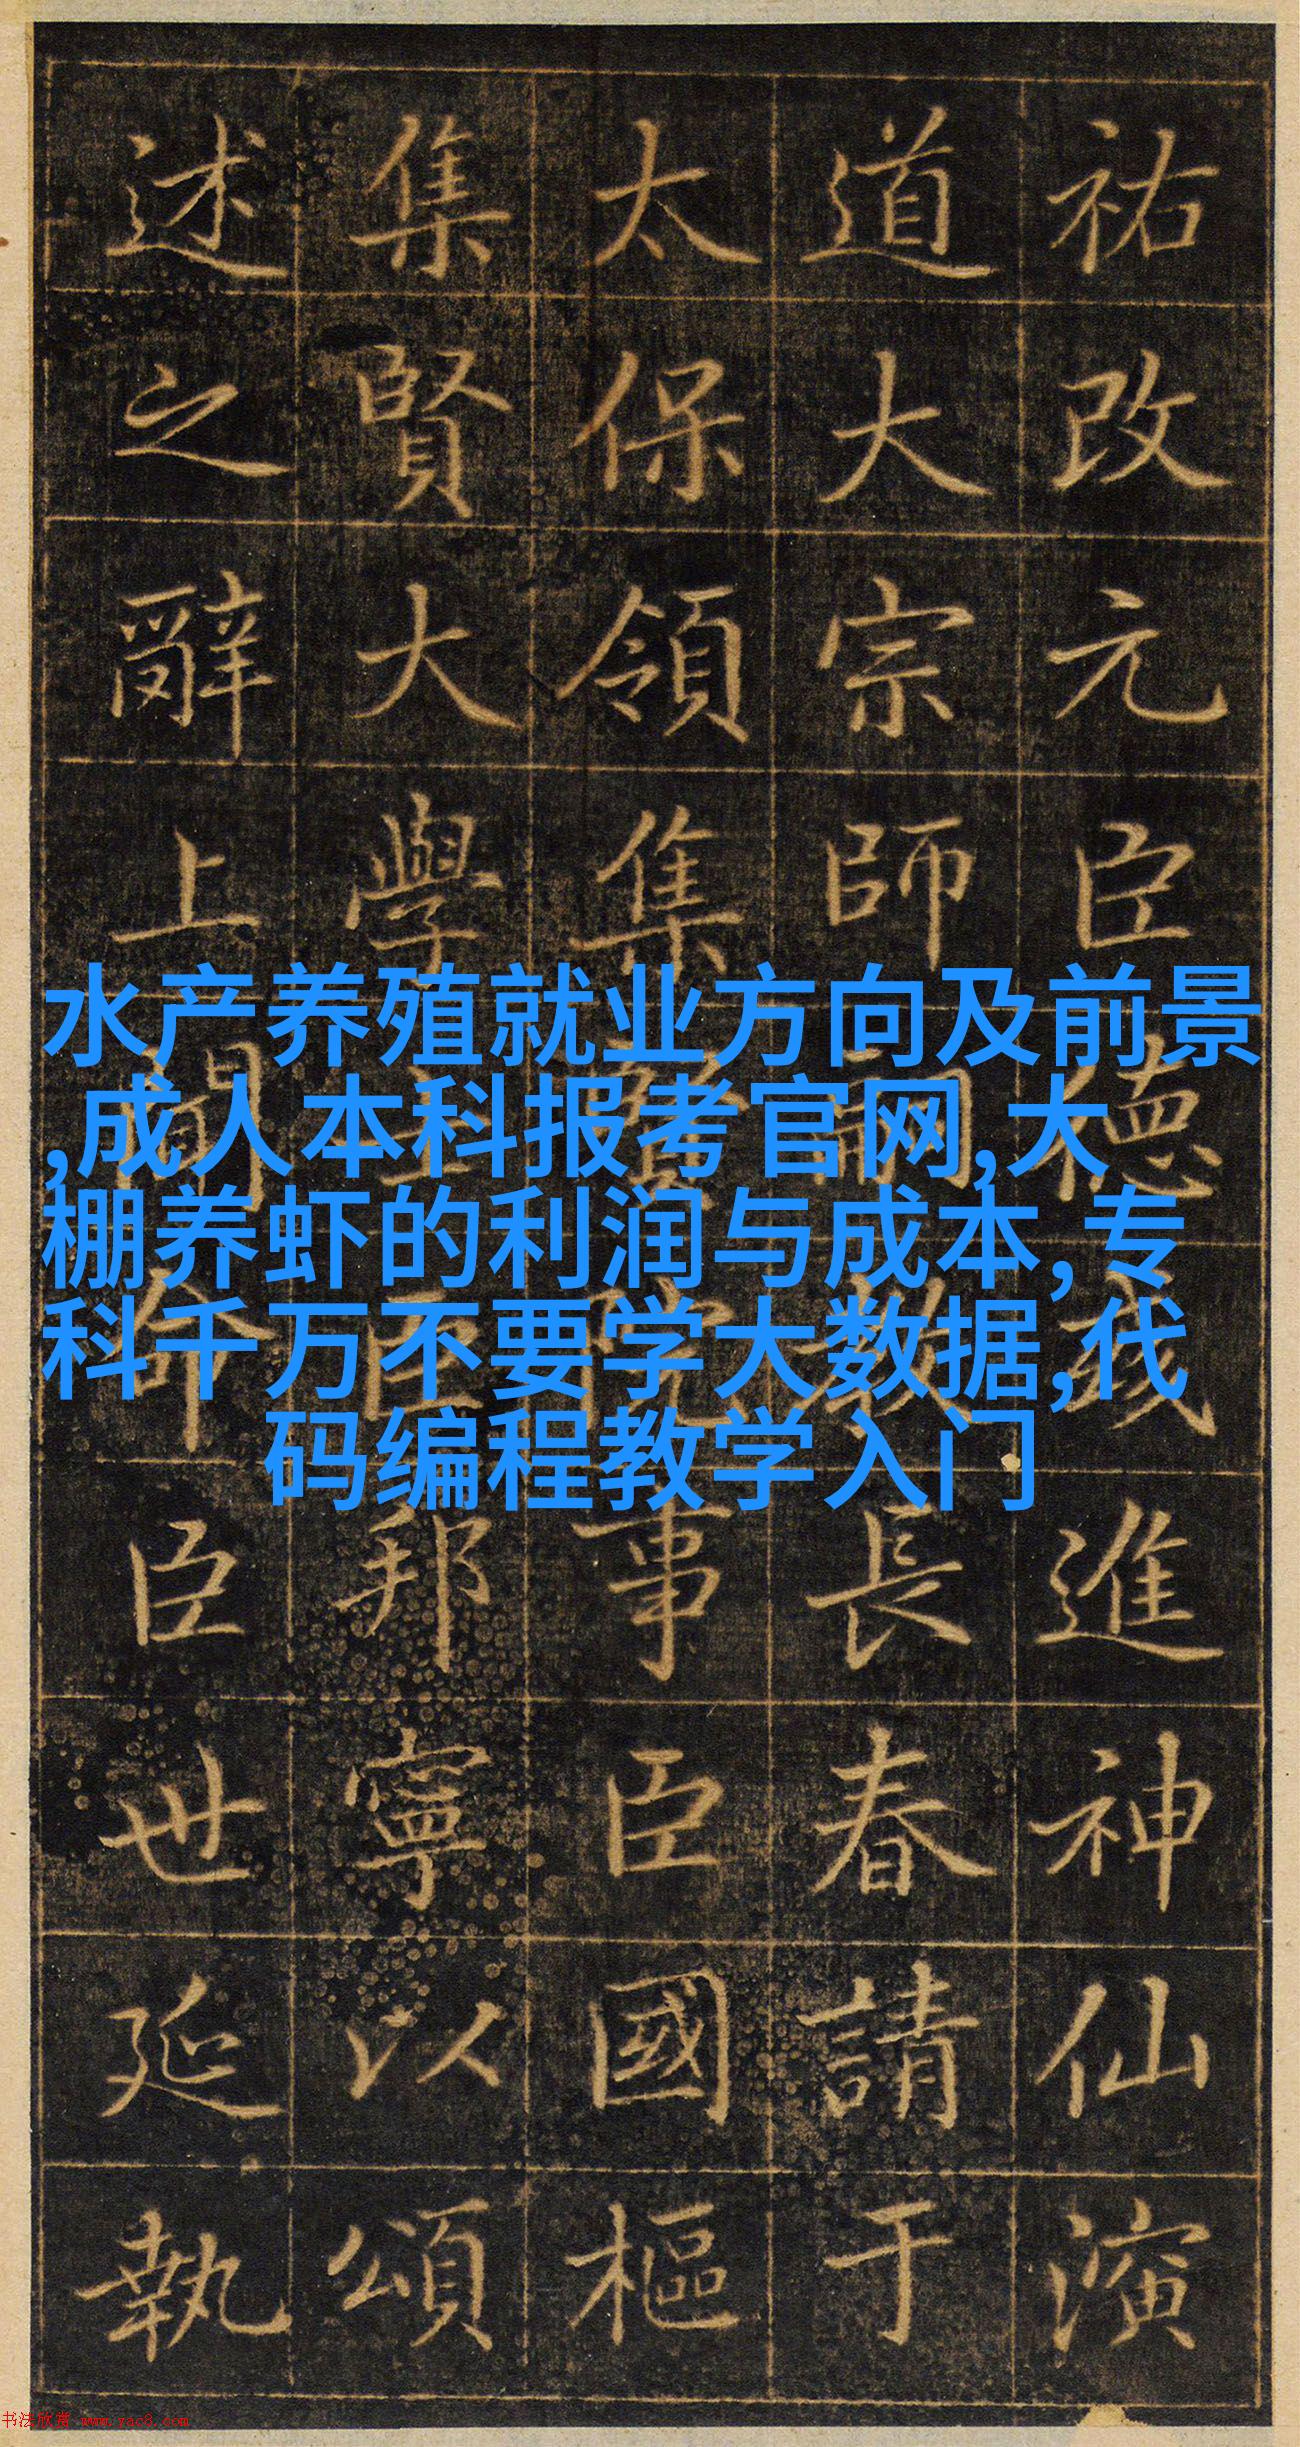 祐改元臣德進神仙演
道大宗師嗣教長春請于
太保領集賢院事臣國樞
集賢大學士臣邦寧以頌
述之辭上聞命臣世延執
水产养殖就业方向及前景
,成人本科报考官网,大
棚养虾的利润与成本,专
科千万不要学大数据,代
码编程教学入门
书法欣赏 www.yac8.com